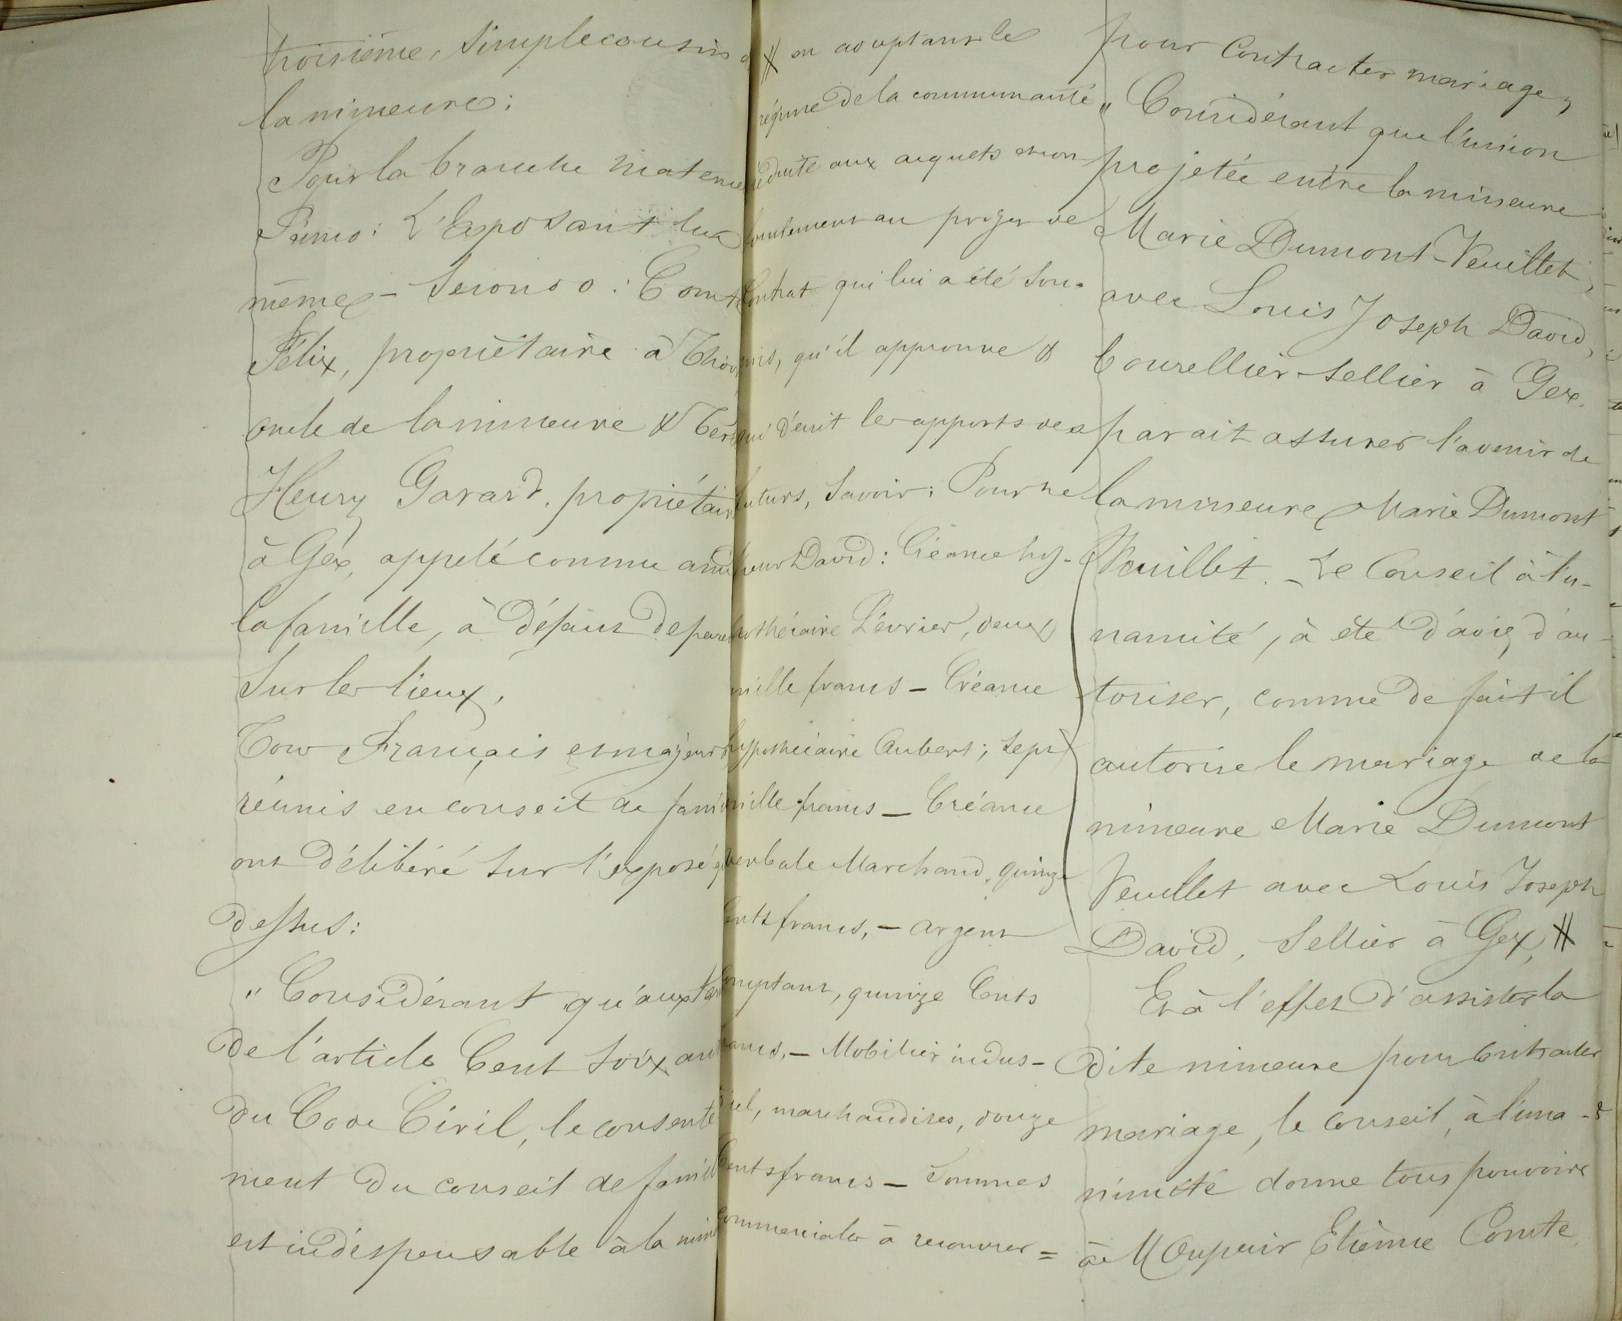 troisième, simple cousin d
la mineure;
Pour la branche materne
Primo: L'Exposant lui
même - Secondo: Comte
Félix, propriétaire à Thoi
oncle de la mineure & Ter
Henry Gavard, propriétair
à Gex, appelé comme ami
la famille, à défaut de paren
sur les lieux.
Tous Français et majeurs
réunis en conseil de fami
ont délibéré sur l'exposé
dessus:
" Considérant qu'aux ter
de l'article Cent soixan
du Code Civil, le consente
ment du conseil de famil
est indispensable à la mine
# en adoptant le
régime de la communauté
réduite aux acquets
contrat qui lui a été sou-
mis, qu'il approuve &
qui décrit les apports des
futurs, savoir: Pour le
sieur David: Créance hy-
pothécaire Lévrier, deux
mille francs - Créance
hypothécaire Aubert; sept
mille francs - Créance
verbale Marchand, quinze
cents francs, - argent
comptant, quinze Cents
francs, - Mobilier indus-
triel, marchandises, douze
Cents francs - Sommes
commerciales à recouvrer =
pour contracter mariage,
" Considérant que l'union
projetée entre la mineure
Marie Dumont-Veuillet,
avec Louis Joseph David,
bourellier-sellier à Gex,
parait assurer l'avenir de
la mineure Marie Dumont
Veuillet. - Le Conseil à l'u-
namité, à été d'avis, d'au-
toriser, comme de fait il
autorise le mariage de la
mineure Marie Dumont
Veuillet avec Louis Joseph
David, Sellier à Gex, #
Et à l'effet d'assister la
dite mineure pour contracter
mariage, le conseil, à l'una-
nimité donne tous pouvoirs
à M Etienne Comte